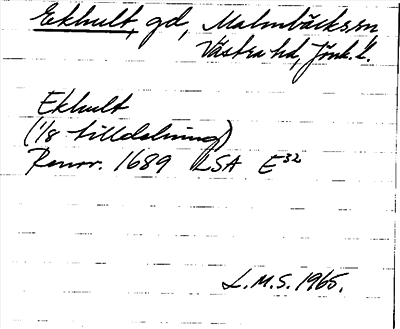 Ekhult, gd, Malmbäcks sn
Västra hd, Jönk. l.
Ekhult
(1/8 tilldelning)
Renov. 1689 LSA E32
L.M.S. 1965.